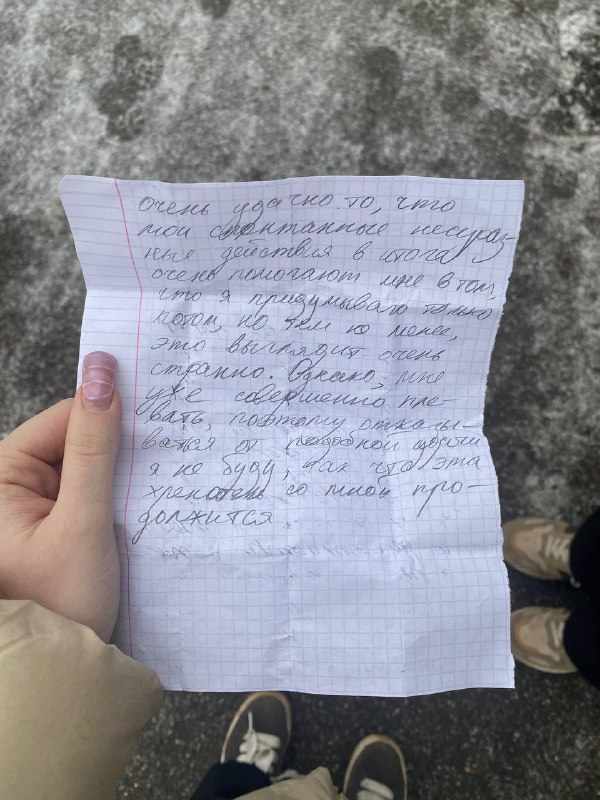 очень удачно то, что
мои спонтанные несураз-
ные действия в итоге
очень помогают мне в том,
что я придумываю только
потом, но тем не менее,
это выглядит очень
странно. Однако, мне
уже совершенно пле-
вать, поэтому отказы-
ваться от подобной
я не буду, так что эта
хренотень со мной про-
должится